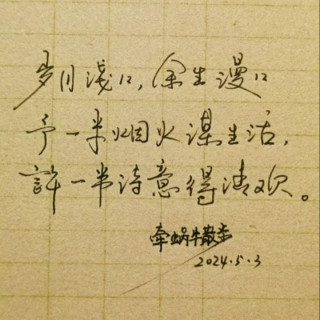 岁月浅口，余生漫口
予一半烟火谋生活，
許一半诗意得清欢。
牵蜗牛散步
2024.5.3